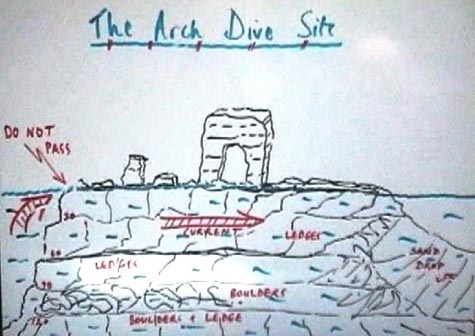 The Arch Dive Site
DO NOT
PASS
30
CURRENT
LEDGES
60
LEDGES
SAND
DROP
90
BOULDERS
BOULDERS + LEDGE
120